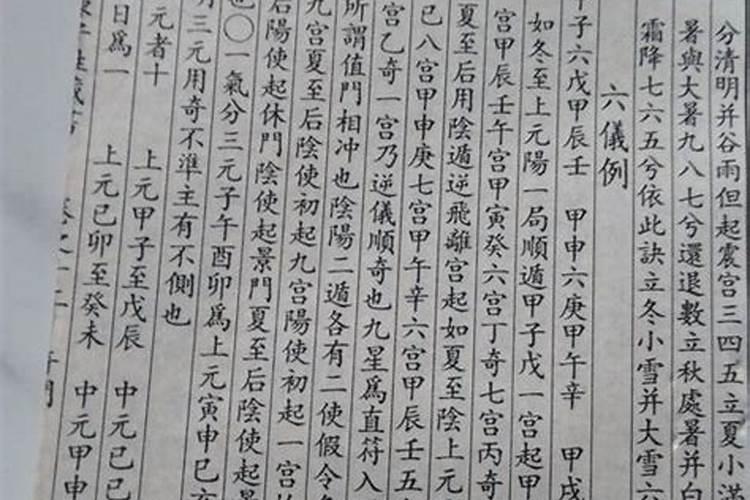 分清明并谷雨但起震宫三四五立夏小滿
暑與大暑九八七兮還退數立秋處暑并白
霜降七六五兮依此訣立冬小雪并大雪六
六儀例
子六戊甲辰壬 甲申六庚甲午辛 甲戌
如冬至上元陽一局順遁甲子戊一宮起甲
宮甲辰壬午宮甲寅癸六宮丁奇七宮丙奇
夏至后用陰遁逆飛離宮起如夏至陰上元
已八宮甲申庚七宮甲午辛六宮甲辰壬五
宮乙奇一宮乃逆儀順奇也九星為直符入
所謂值門相冲也陰陽二遁各有二使假令
九宮夏至后陰使初起九宮陽使初起一宮
后陽使起休門陰使起景門夏至后陰使起景
也〇一氣分三元子午酉卯為上元寅申巳亥
三元用奇不準主有不側也
元者十 上元甲子至戊辰 中元己巳
日為一 上元己卯至癸未 中元甲申